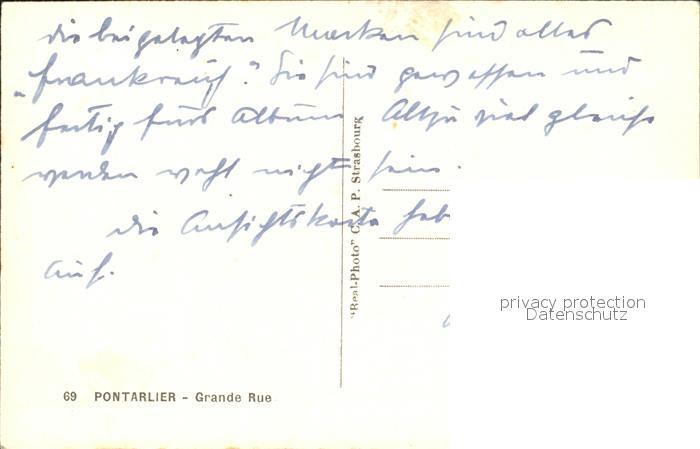 die beigelegten Marken sind alles
„Frankreich". Sie sind gewaschen und
fertig fürs Album. Allzu viel gleiche
werden wohl nicht sein.
die Ansichtskarte heb
auf.
"Real-Photo" C. A. P. Strasbourg
privacy protection
Datenschutz
69 PONTARLIER - Grande Rue